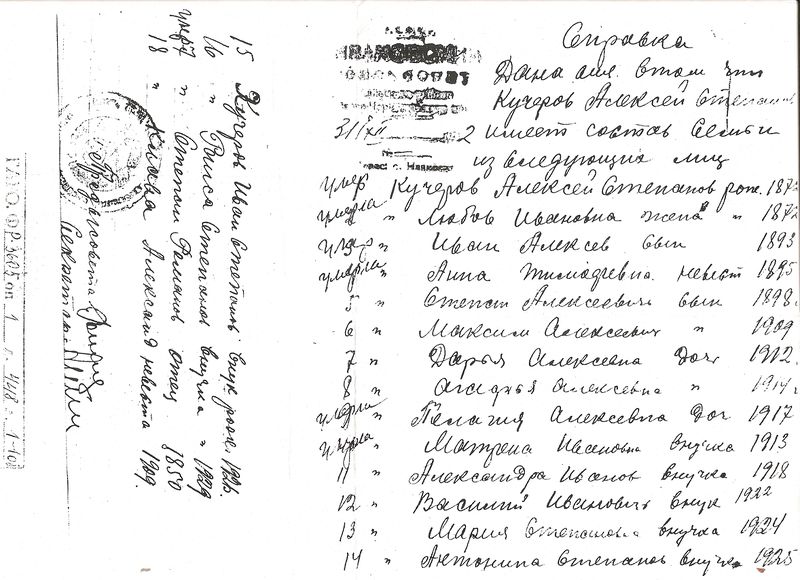 Справка
Дана сия в том что
Кучеров Алексей Степанов
31/XII 2 имеет состав Семьи
из Следующих лиц
умер Кучеров Алексей Степанов рож. 187
умерла " Любов Ивановна жена " 1872
умер " Иван Алексев сын 1893
умерла " Анна невест 1895
5 " Степан Алексеевич сын 1898
6 " Максим Алексевич " 1909
7 " Дарья Алексевна Доч 1912
8 " Агафья Алексевна " 1914
умерла " Пелагия Алексевна Доч 1917
умерла " Матрена Ивановна внучка 1913
11 " Александра Иванов внучка 1918
12 " Василий Иванович внук 1922
13 " Мария Степановна внучка 1924
14 " Антонина Степанов внучка 1925
15 Кучеров Иван Степанов внук рож. 192
16 " Раиса Степанов внучка " 1929
умер 17 " Степан Романов отец 1850
18 " Александ невеста 1909
Пред. совета
Секретарь